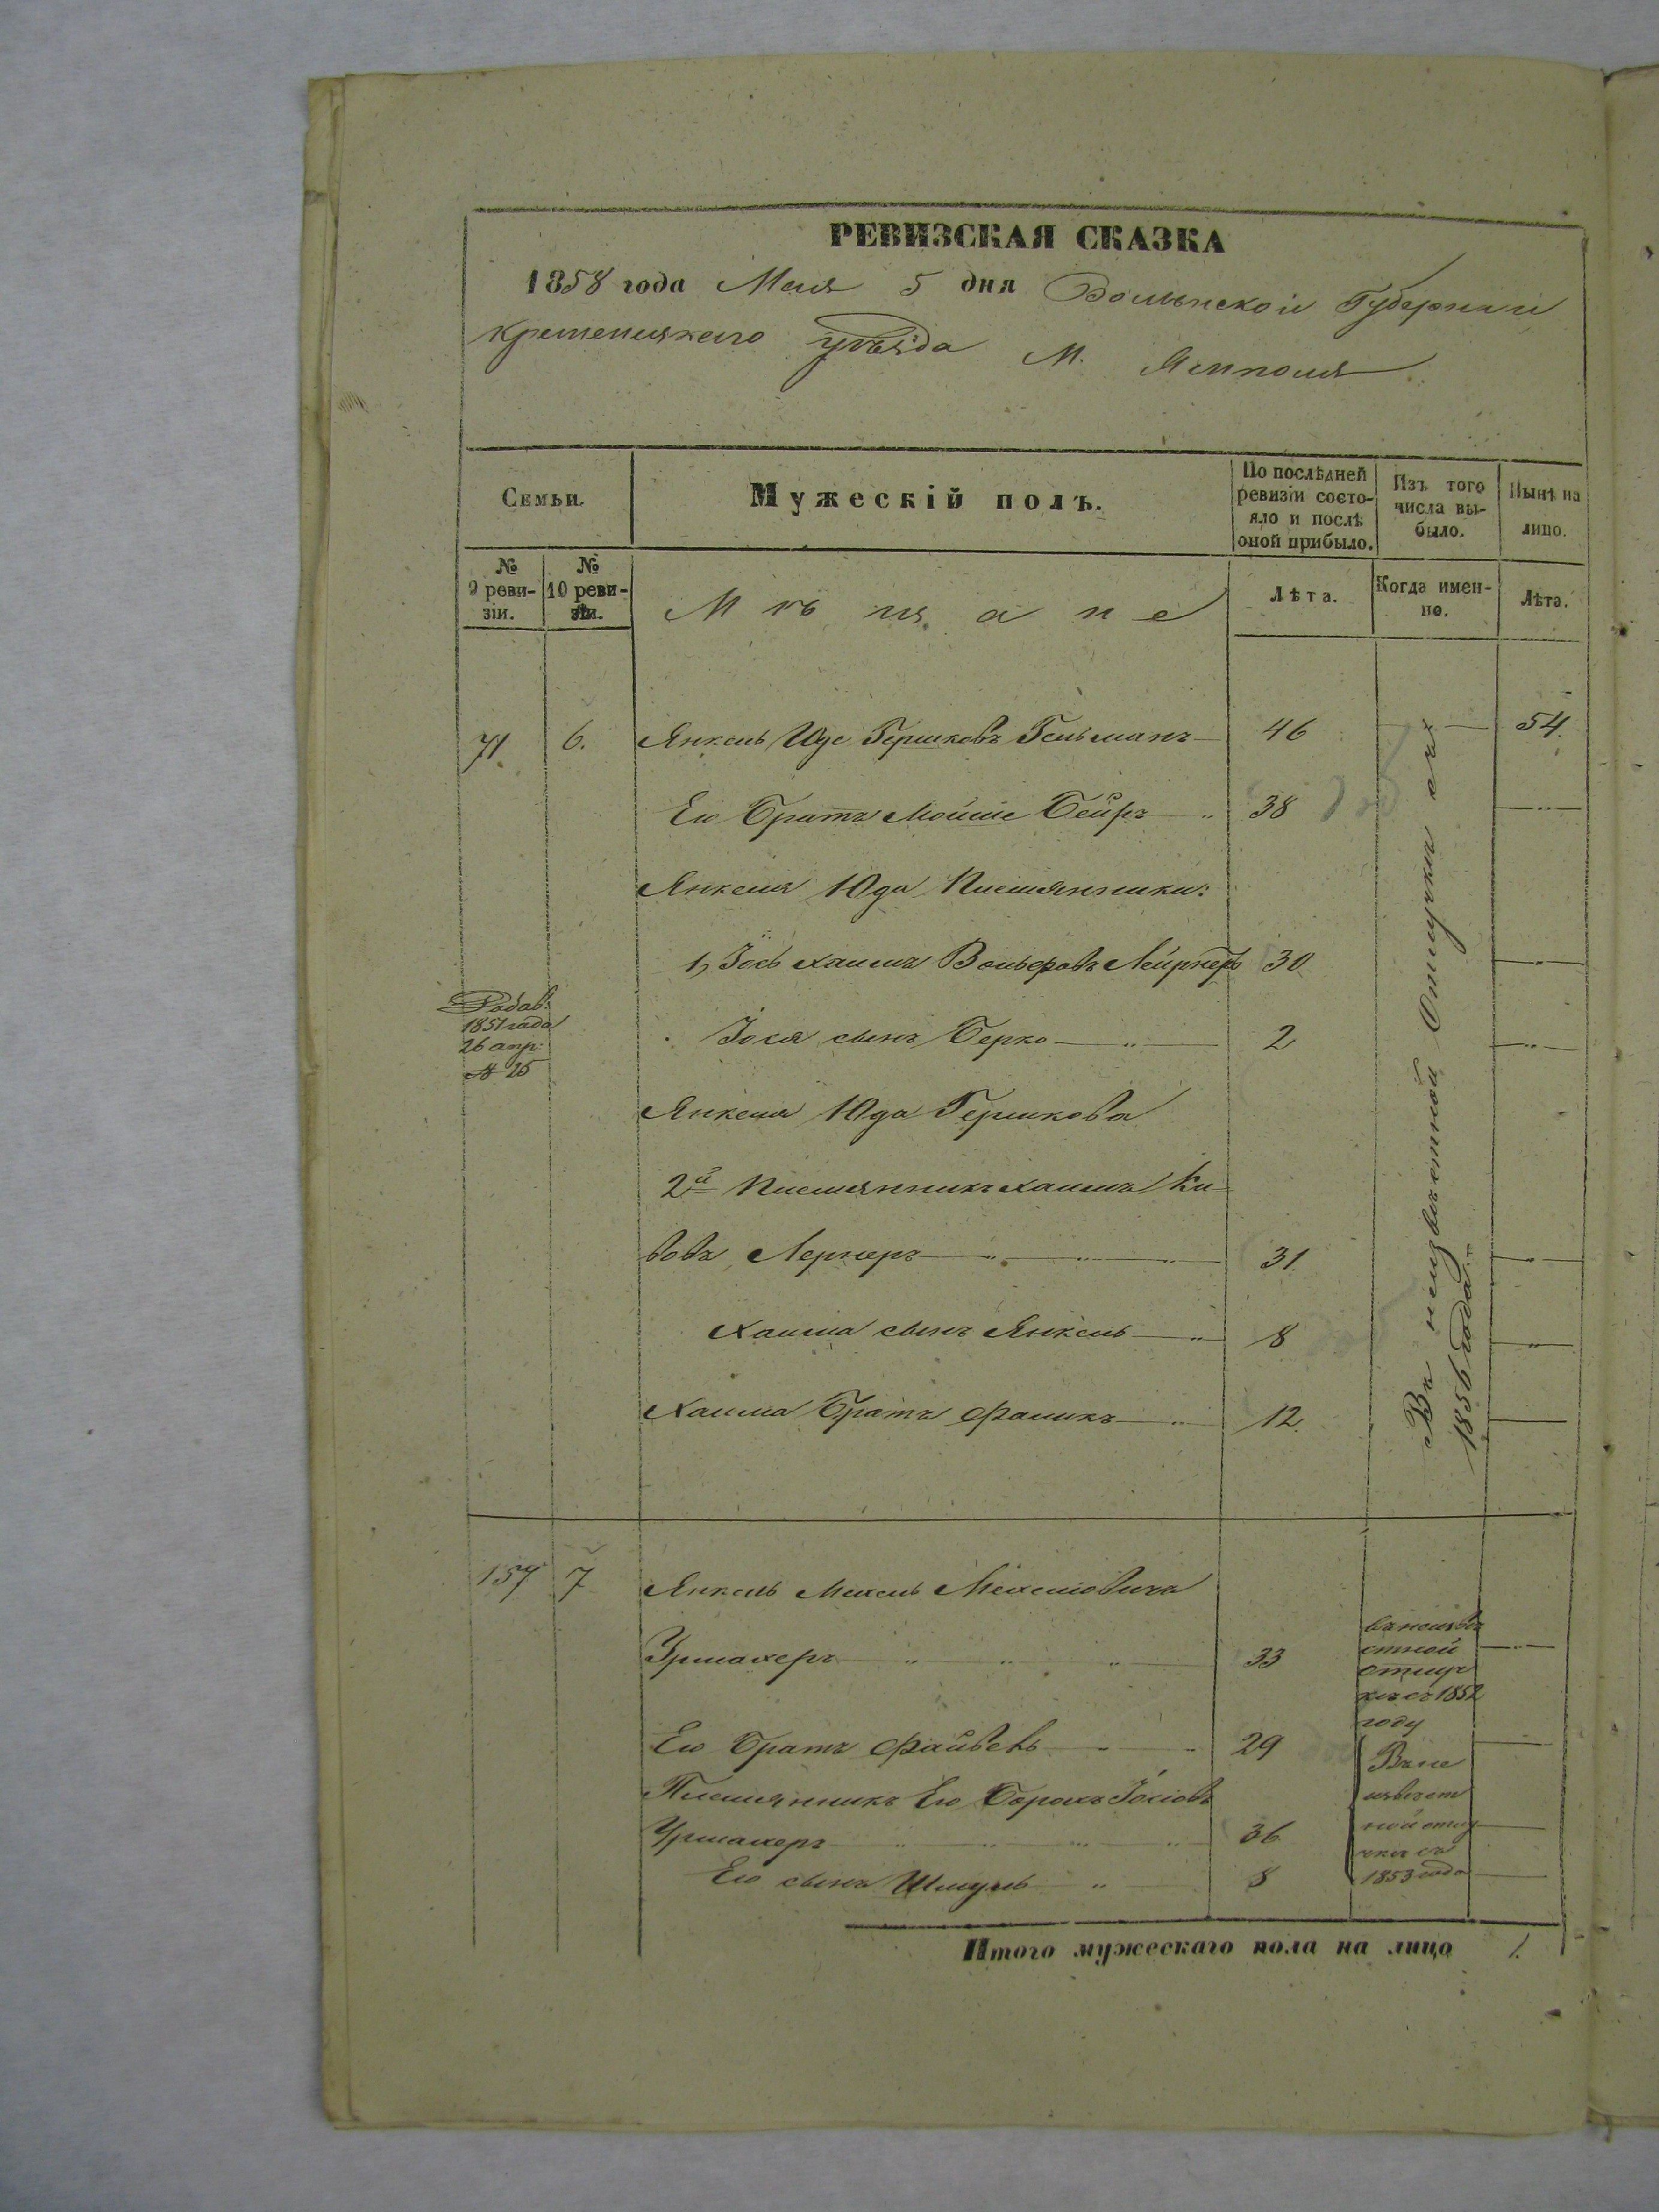 РЕВИЗСКАЯ СКАЗКА
1858 года Мая 5 дня Волынской Губернии
Кременецкаго уѣзда М. Ямполя
Семьи.
Мужескій полъ.
По послѣдней ревизіи состояло и послѣ оной прибыло.
Изъ того числа выбыло.
Нынѣ на лицо.
№ 9 ревизіи.
№ 10 ревизіи.
Мѣщане
Лѣта.
Когда именно.
Лѣта.
71 6. Янкель Юде Гершковъ Гельманъ 46 54
Его Братъ Мойше Бейръ 38
Янкеля Юда Племянники:
1, Іось Хаимъ Вольфовъ Лейрнеръ 30
Іося сынъ Берко 2
Добав:
1851 года
26 апр:
№ 25
Янкеля Юда Гершкова
2й Племянникъ Хаимъ Ки-
вовъ Лернеръ 31
Хаима сынъ Янкель 8
Хаима Братъ Фаликъ 12.
Въ неизвѣстной Отлучки съ
1856 года
157 7 Янкель Мехель Мехелiовичъ
Урмахеръ 33
въ неизвѣ
стной
отлуч
кѣ съ 1852
году
Его Братъ Файвель 29
Племянникъ Его Борохъ Іосіовъ
Урмахеръ 36
Его сынъ Шмуль 8
Въ не
извѣст
ной отлу
чки съ
1853 года
Итого мужескаго пола на лицо 1.